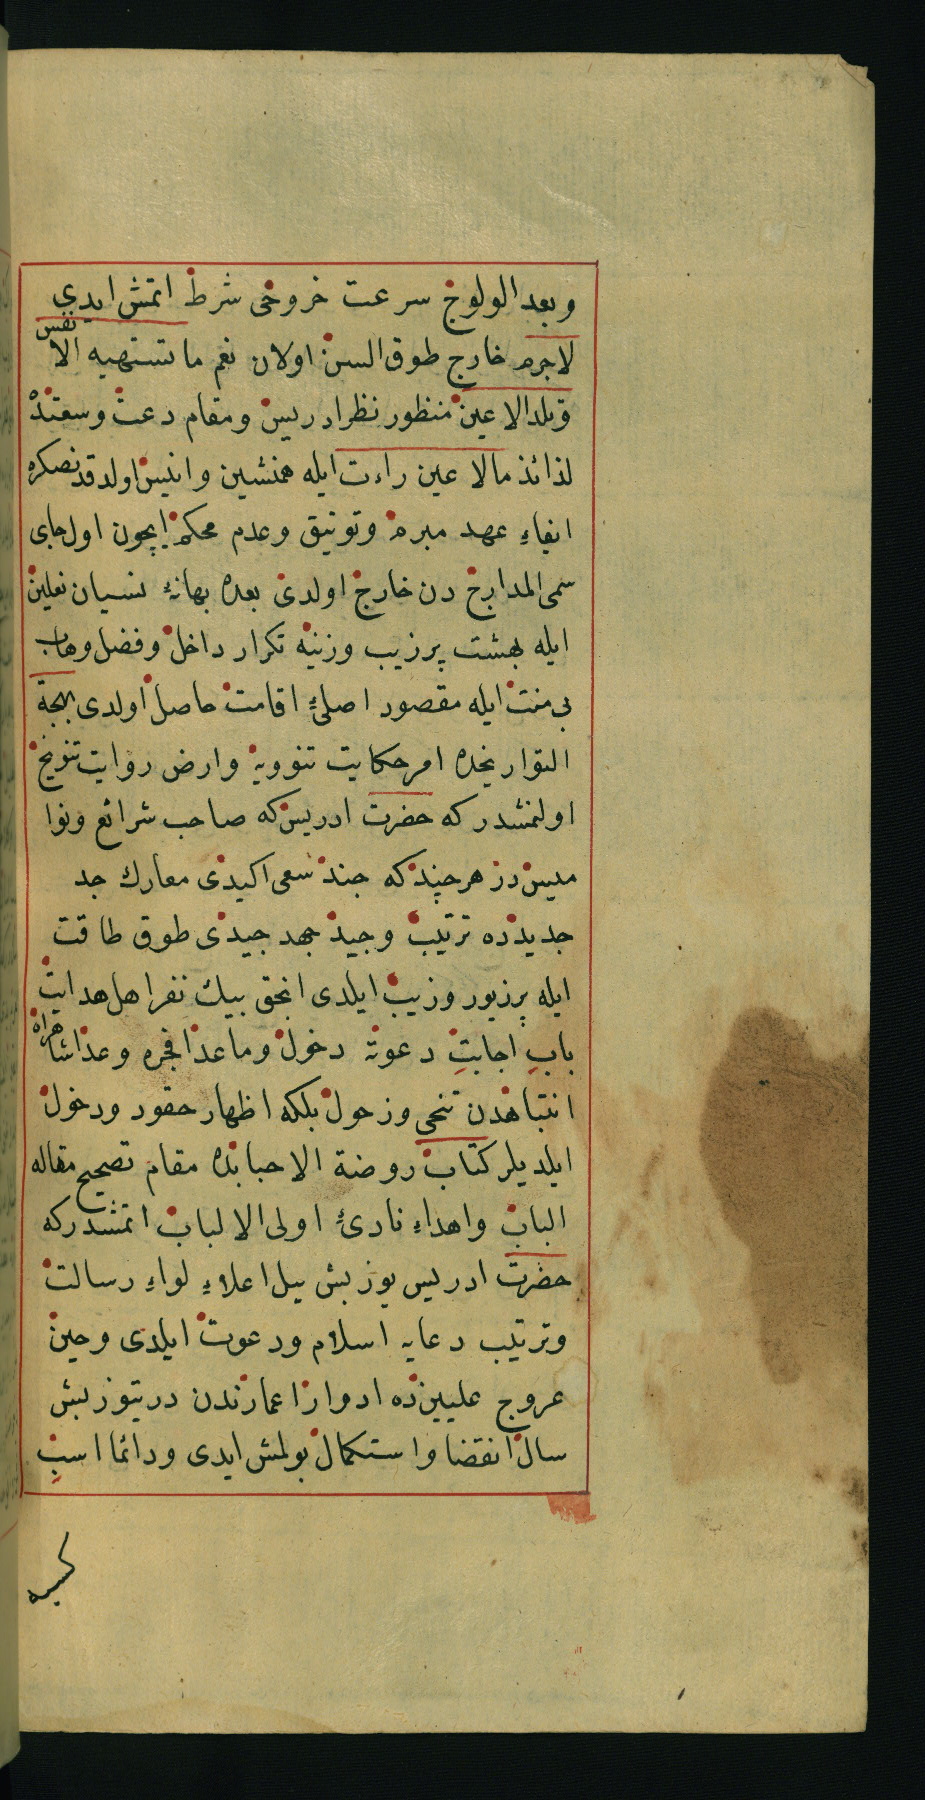 وبعد الولوج سرعت خروجى شرط اتمش ايدى
لاجرم خارج طوق السن اولان نعم ما تشتهيه الا نفس
وتلد الاعين منظور نظر ادريس ومقام دعت وسعتده
لذائذ مالا عين راءت ايله همنشين وانيس اولدقدنصكره
ايفاء عهد مبرم وتوثيق وعدم محكم ايچون اول جاى
سمى المدارج دن خارج اولدى بعده بهانهٔ نسيان نعلين
ايله بهشت پرزيب وزينه تكرار داخل وفضل وهاب
بى منت ايله مقصود اصلىٔ اقامت حاصل اولدى بهجة
التواريخده امر حكايت تنوويه وارض روايت تنويخ
اولنمشدر كه حضرت ادريس كه صاحب شرائع ونوا
ميسن در هر چند كه جند سعى اكيدى معارك جد
جديدده ترتيب وجيد جهد جيدى طوق طاقت
ايله پرزيور وزيب ايلدى انجق بيك نفر اهل هدايت
باب اجابت دعوته دخول وماعدا فجره وعدا شاهراه
انتباهدن تنحى وزحول بلكه اظهار حقود ودخول
ايلديلر كتاب روضة الاحبابده مقام تصحيح مقاله
الباب واهداء نادىٔ اولى الالباب اتمشدركه
حضرت ادريس يوز بش ييل اعلاء لواء رسالت
وترتيب دعايه اسلام ودعوت ايلدى وحين
عروج عليين ده ادوار اعمارندن درتيوز بش
سال انقضا واستكمال بولمش ايدى ودائما اسب